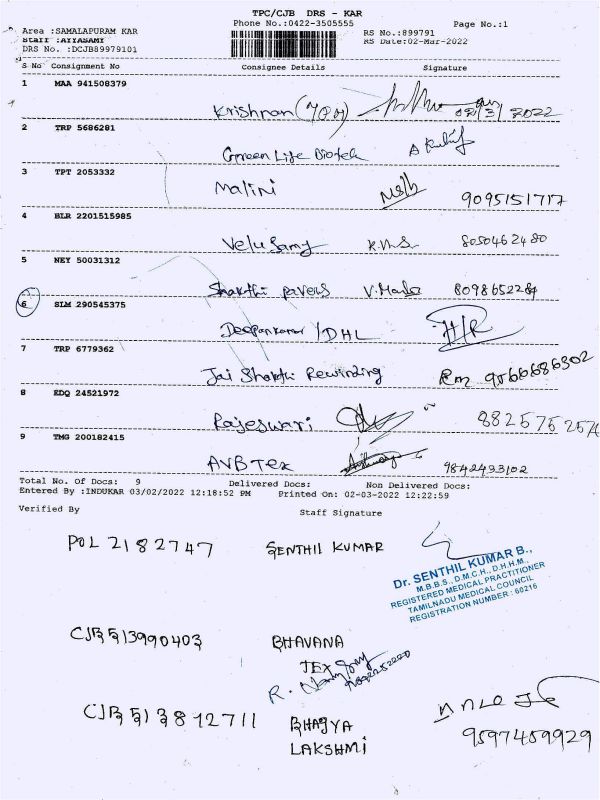 TPC/CJB DRS - KAR
Phone No.:0422-3505555 Page No.:1
Area :SAMALAPURAM KAR RS No.:899791
Staff :AYYASAMI RS Date:02-Mar-2022
DRS No. :DCJB89979101
S No Consignment No Consignee Details Signature
1 MAA 941508379
Krishnan 02/3/2022
2 TRP 5686281
Green Life Biotek
3 TPT 2053332
Malini 9095151717
4 BLR 2201515985
Velu Samy K.M.S. 8050462480
5 NEY 50031312
Shakthi pavers 8098652284
6 SLM 290545375
Deepankumar / DHL
7 TRP 6779362
Jai Shakthi Rewinding 9566686302
8 EDQ 24521972
Rajeswari 8825752574
9 TMG 200182415
AVB Tex 9842493102
Total No. Of Docs: 9 Delivered Docs: Non Delivered Docs:
Entered By :INDUKAR 03/02/2022 12:18:52 PM Printed On: 02-03-2022 12:22:59
Verified By Staff Signature
POL 2182747 SENTHIL KUMAR
Dr. SENTHIL KUMAR B.,
M.B.B.S., D.M.C.H., D.H.H.M.,
REGISTERED MEDICAL PRACTITIONER
TAMILNADU MEDICAL COUNCIL
REGISTRATION NUMBER : 60216
CJB 513990403 BHAVANA
TEX
R.
CJB 513812711 BHAGYA
LAKSHMI
9597459929